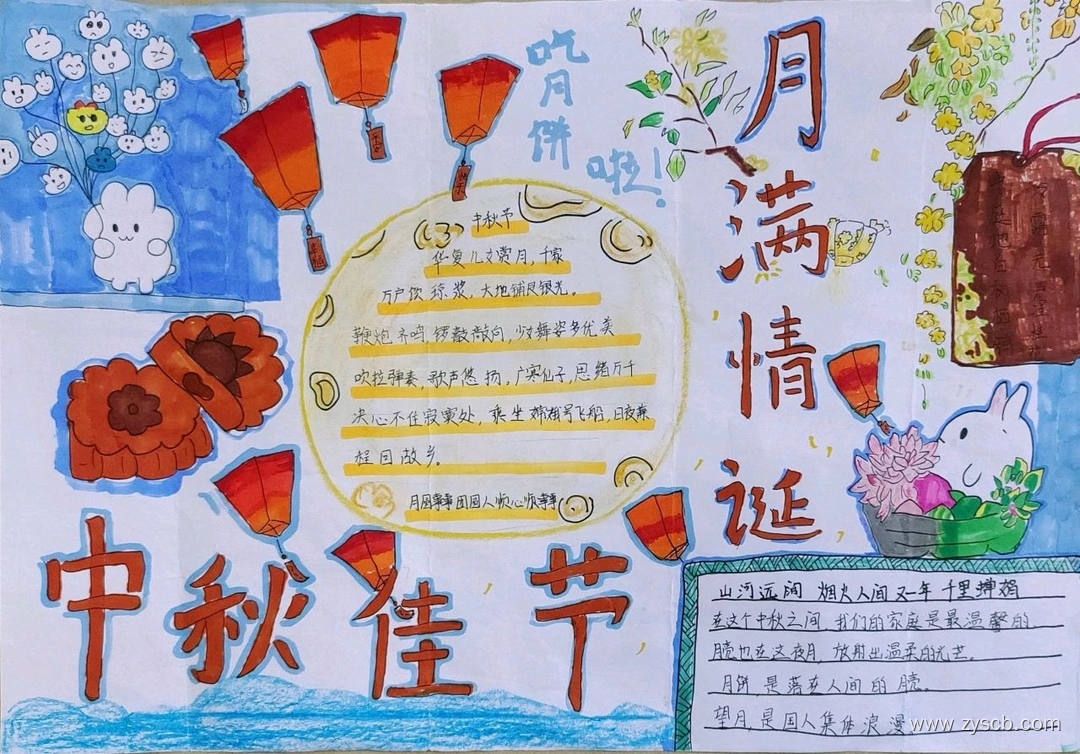 吃月饼啦!
月满情诞
中秋节
华夏儿女赏月,千家
万户饮琼浆,大地铺尽银光。
鞭炮齐鸣,锣鼓敲响,少女舞姿多优美
吹拉弹奏,歌声悠扬,广寒仙子,思绪万千
决心不住寂寞处,乘坐嫦娥号飞船,日夜兼
程回故乡。
月圆事事圆圆人顺心顺事事
中秋佳节
山河远阔 烟火人间 又一年 千里婵娟
在这个中秋之间,我们的家庭是最温馨的.
月亮也在这夜月,放射出温柔的光芒。
月饼,是落在人间的月亮。
望月,是国人集体浪漫
www.zyscb.com